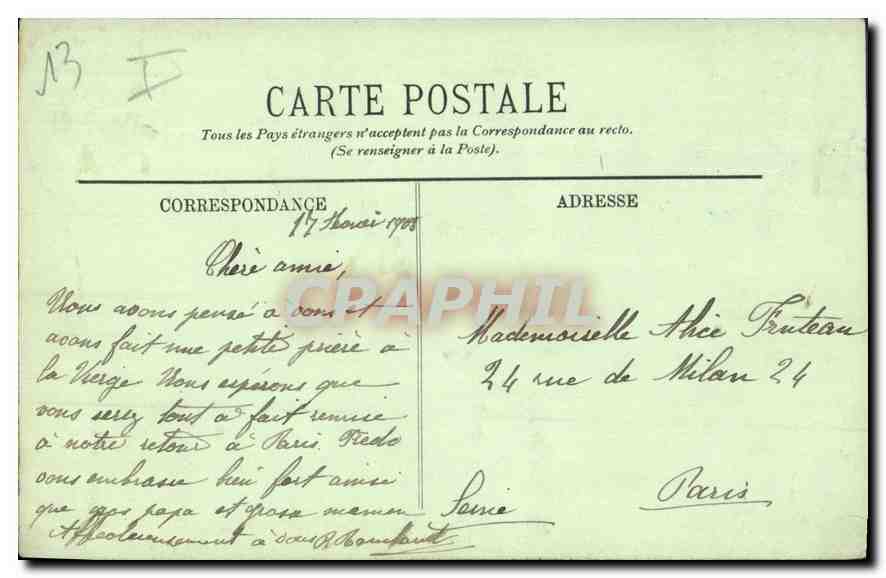 13 I
CARTE POSTALE
Tous les Pays étrangers n'acceptent pas la Correspondance au recto.
(Se renseigner à la Poste).
CORRESPONDANCE
17 1908
Chère amie,
Nous avons pensé à vous et
avons fait une petite prière à
la Vierge Nous espérons que
vous serez tout à fait remise
à notre retour à Paris. Fredo
vous embrasse bien fort ainsi
que gros papa et grosse maman
Affectueusement à vous
ADRESSE
Mademoiselle Alice Fruteau
24 rue de Milan 24
Paris
Seine
CPAPHIL